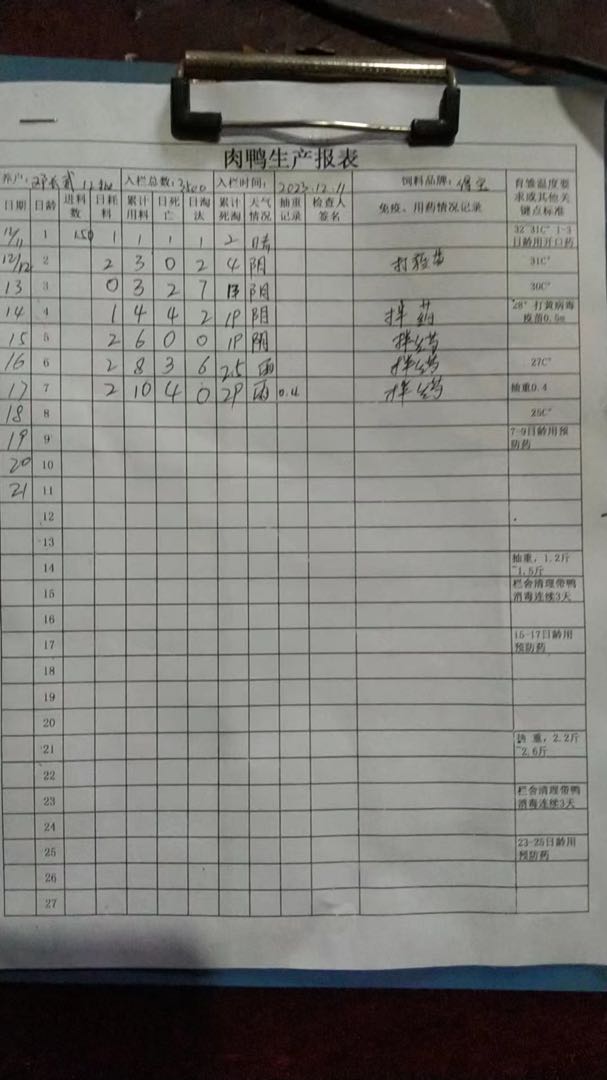 肉鸭生产报表
养户: 入栏总数:3500 入栏时间:2023.12.11 饲料品牌: 育雏温度要求或其他关键点标准
日期 日龄 进料数 日耗料 累计用料 日死亡 日淘汰 累计死淘 天气情况 抽重记录 检查人签名 免疫、用药情况记录
12/11 1 150 1 1 1 1 2 晴 32-31C° 1-3日龄用开口药
12/12 2 2 3 0 2 4 阴 31C°
13 3 0 3 2 7 13 阴 30C°
14 4 1 4 4 2 19 阴 拌药 28°打黄病毒疫苗0.5m
15 5 2 6 0 0 19 阴 拌药
16 6 2 8 3 6 25 雨 拌药 27C°
17 7 2 10 4 0 29 雨 0.4 拌药 抽重0.4
18 8 25C°
19 9 7-9日龄用预防药
20 10
21 11
12
13
14 抽重,1.2斤-1.5斤
15 栏舍清理带鸭消毒连续3天
16
17 15-17日龄用预防药
18
19
20
21 抽重,2.2斤-2.6斤
22
23 栏舍清理带鸭消毒连续3天
24
25 23-25日龄用预防药
26
27